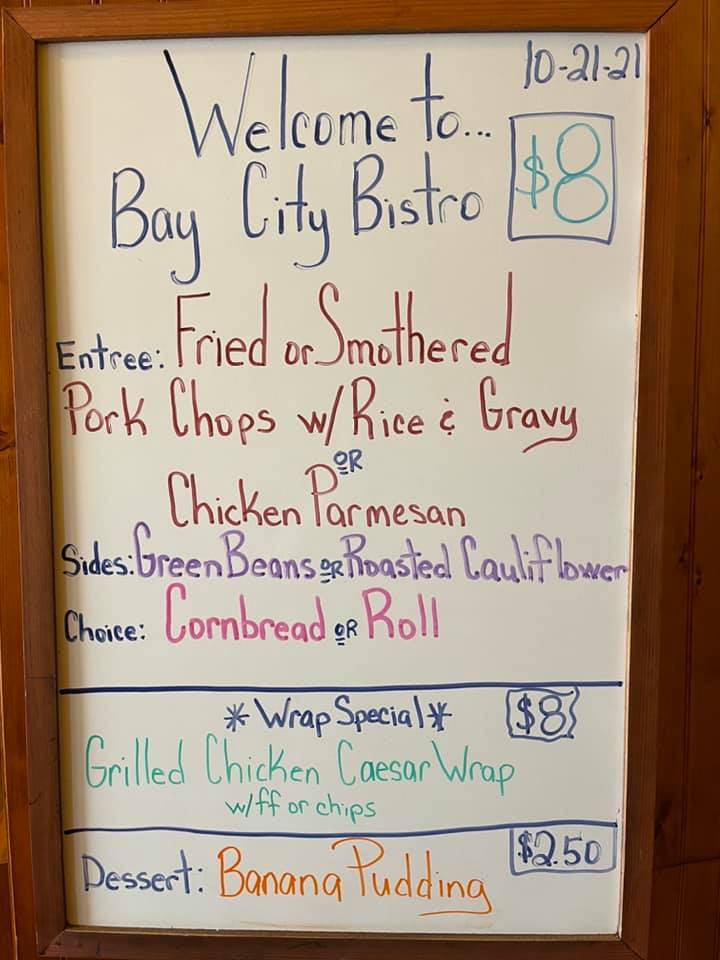 10-21-21
Welcome to...
Bay City Bistro
$8
Entree: Fried or Smothered
Pork Chops w/Rice & Gravy
OR
Chicken Parmesan
Sides: Green Beans OR Roasted Cauliflower
Choice: Cornbread OR Roll
* Wrap Special * $8
Grilled Chicken Caesar Wrap
w/ff or chips
Dessert: Banana Pudding $2.50